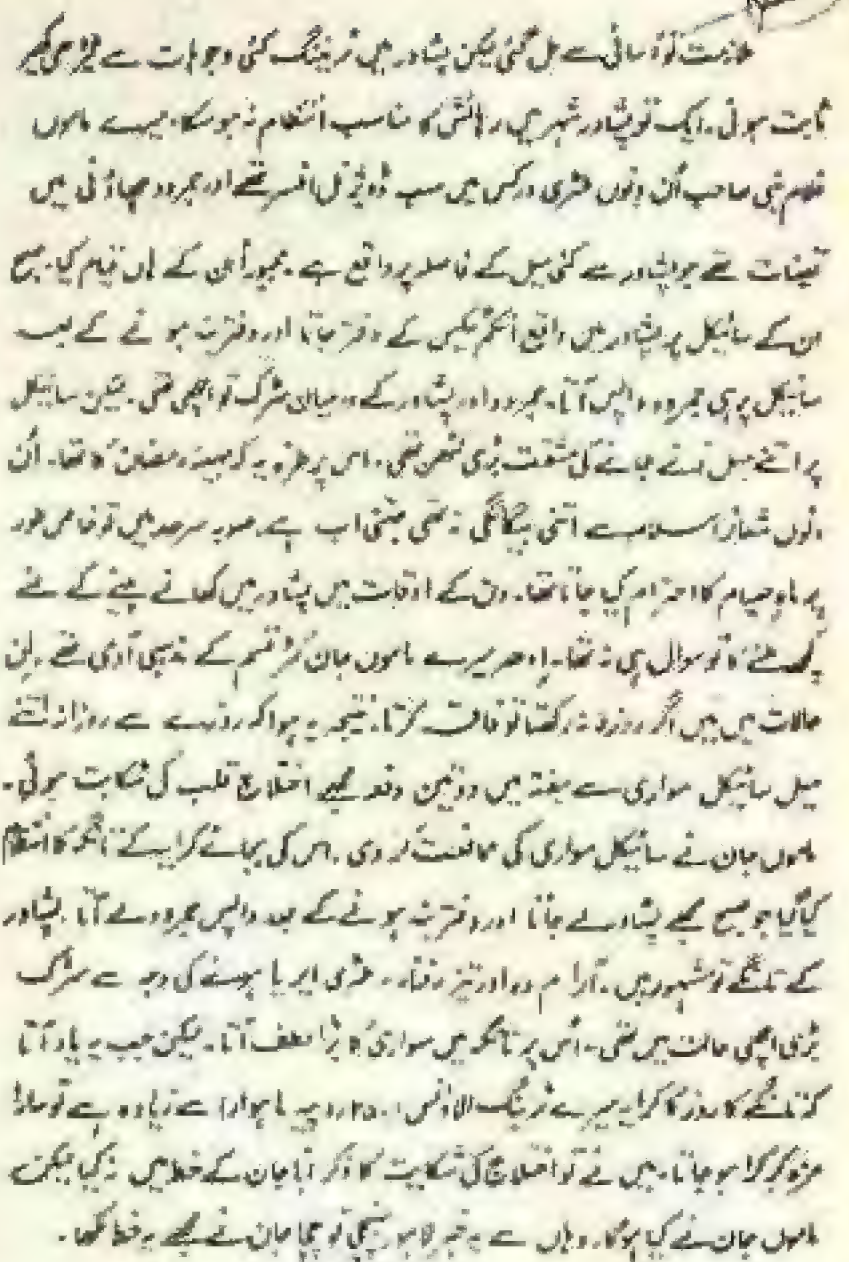 ملازمت تو آسانی سے مل گئی لیکن پشاور میں ٹریننگ کئی وجوہات سے ٹیڑھی کھیر
ثابت ہوئی۔ ایک تو پشاور شہر میں رہائش کا مناسب انتظام نہ ہو سکا۔ میرے ماموں
غلام نبی صاحب اُن دنوں ملٹری ورکس میں سب ڈویژنل افسر تھے اور جمرود چھاؤنی میں
تعینات تھے جو پشاور سے کئی میل کے فاصلہ پر واقع ہے۔ مجبوراً اُن کے ہاں قیام کیا۔ صبح
ان کے سائیکل پر پشاور میں واقع انکم ٹیکس کے دفتر جاتا اور دفتر بند ہونے کے بعد
سائیکل پر ہی جمرود واپس آتا۔ جمرود اور پشاور کے درمیان سڑک تو اچھی تھی۔ لیکن سائیکل
پر اتنے میل آنے جانے کی مشقت بڑی کٹھن تھی۔ اس پر طرہ یہ کہ مہینہ رمضان کا تھا۔ اُن
دنوں شعائر اسلام سے اتنی بیگانگی نہ تھی جتنی اب ہے۔ صوبہ سرحد میں تو خاص طور
پر ماہ صیام کا احترام کیا جاتا تھا۔ دن کے اوقات میں پشاور میں کھانے پینے کے لئے
کچھ ملنے کا تو سوال ہی نہ تھا۔ اِدھر میرے ماموں جان کٹر قسم کے مذہبی آدمی تھے۔ اِن
حالات میں میں اگر روزہ نہ رکھتا تو فاقہ کرتا۔ نتیجہ یہ ہوا کہ روزے سے روزانہ اتنے
میل سائیکل سواری سے ہفتہ میں دو تین دفعہ مجھے اختلاج قلب کی شکایت ہوئی۔
ماموں جان نے سائیکل سواری کی ممانعت کر دی۔ اس کی بجائے کرایہ کے تانگہ کا انتظام
کیا گیا جو صبح مجھے پشاور لے جاتا اور دفتر بند ہونے کے بعد واپس جمرود لے آتا۔ پشاور
کے تانگے تو مشہور ہیں۔ آرام دہ اور تیز رفتار۔ ملٹری ایریا ہونے کی وجہ سے سڑک
بڑی اچھی حالت میں تھی۔ اُس پر تانگہ میں سواری کا بڑا لطف آتا۔ لیکن جب یہ یاد آتا
کہ تانگے کا روز کا کرایہ میرے ٹریننگ الاؤنس (۲۵۰ روپیہ ماہوار) سے زیادہ ہے تو سارا
مزہ کرکرا ہو جاتا۔ میں نے تو اختلاج کی شکایت کا ذکر ابا جان کے خط میں نہ کیا لیکن
ماموں جان نے کیا ہوگا۔ وہاں سے یہ خبر لاہور پہنچی تو چچا جان نے مجھے یہ خط لکھا۔